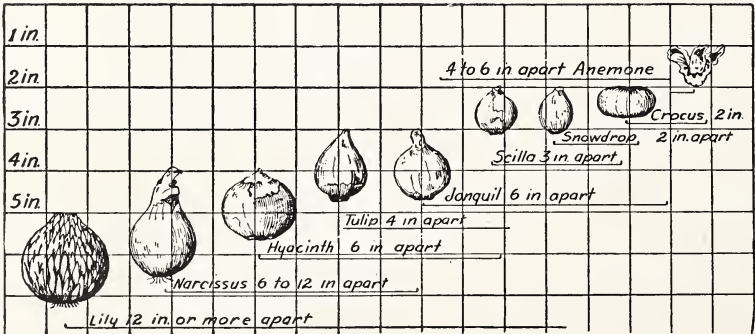 1 in.
2 in.
3 in.
4 in.
5 in.
4 to 6 in apart Anemone
Crocus, 2 in.
Snowdrop, 2 in. apart
Scilla 3 in. apart
Jonquil 6 in apart
Tulip 4 in apart
Hyacinth 6 in apart
Narcissus 6 to 12 in apart
Lily 12 in. or more apart